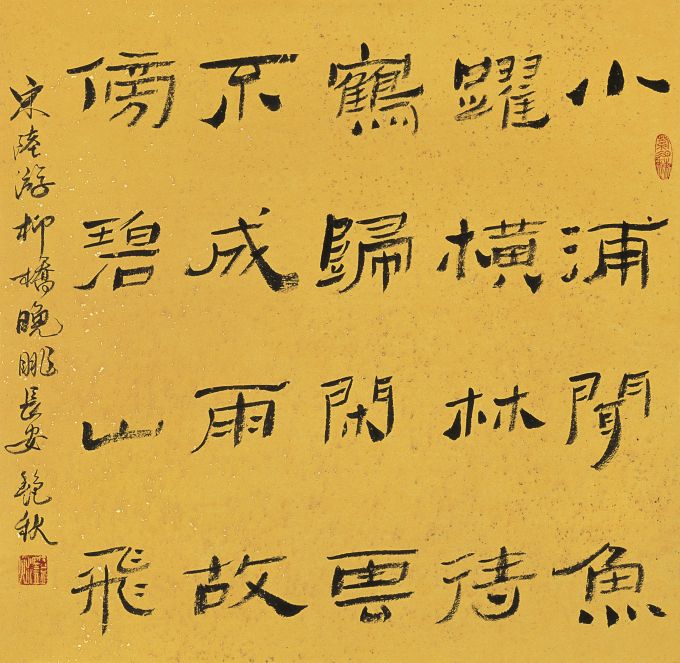 小浦聞魚
躍橫林待
鶴歸閑雲
不成雨故
傍碧山飛
宋陸游柳橋晚眺長安秋